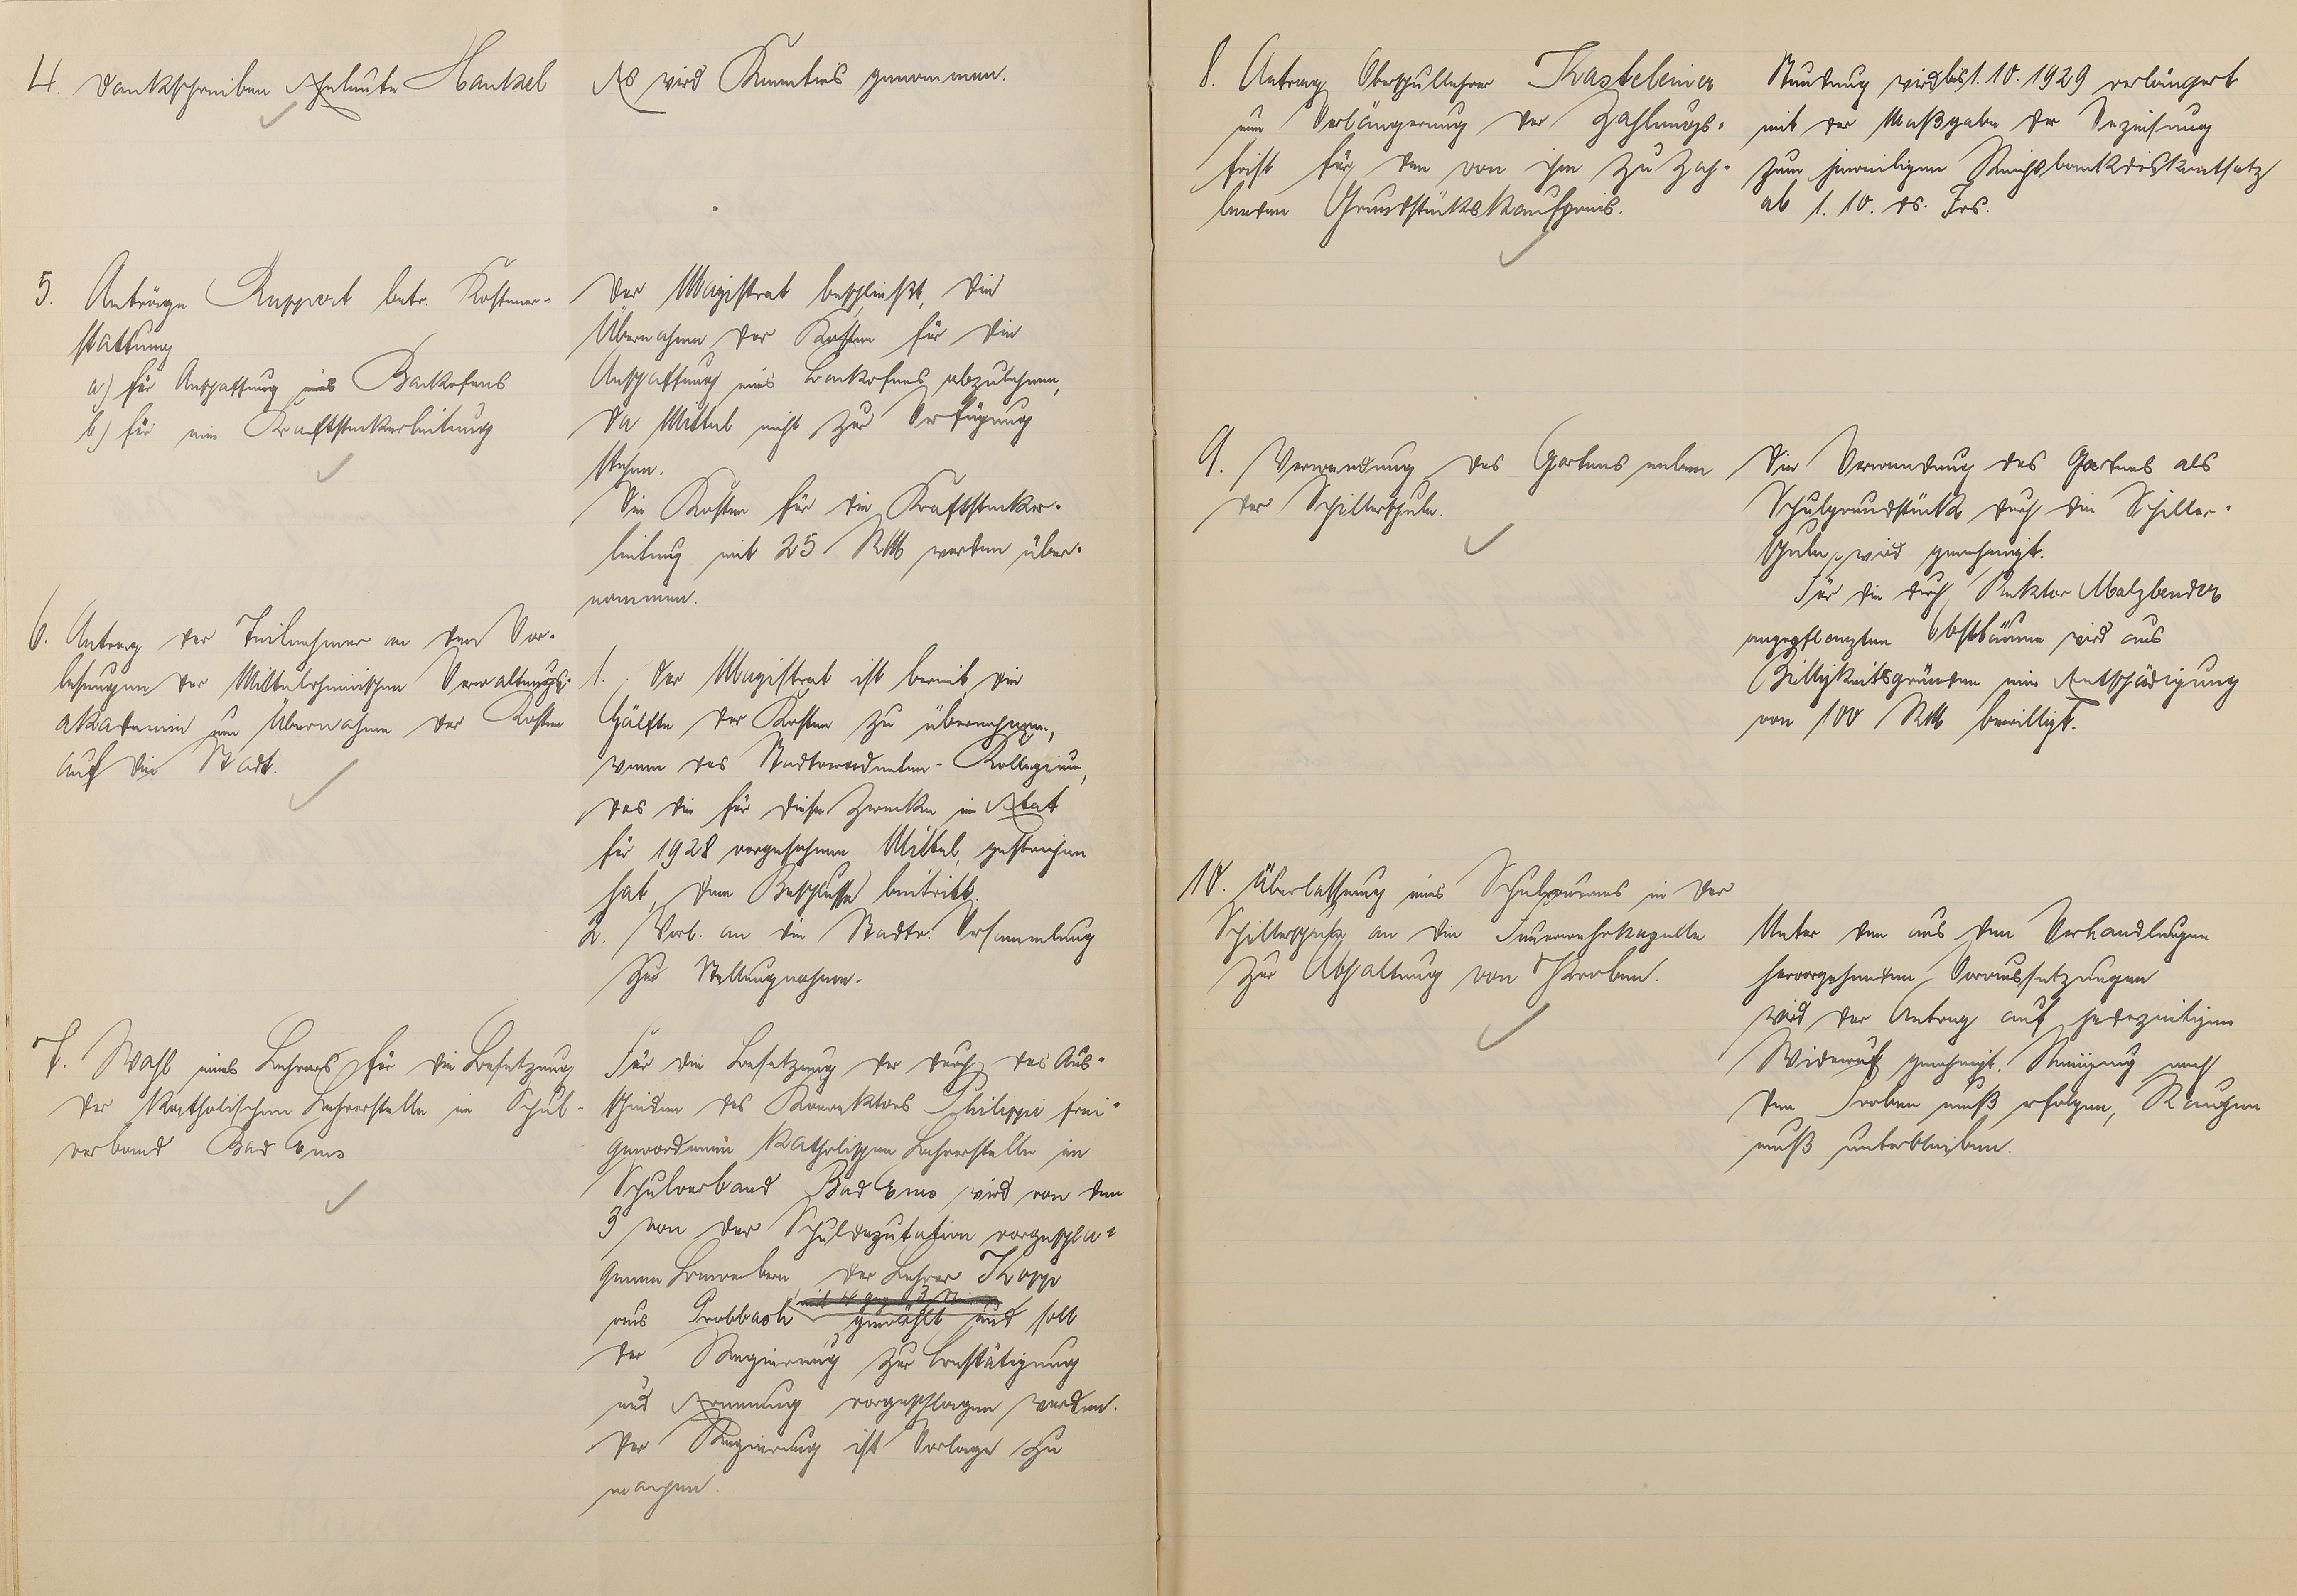 4. Dankschreiben Eheleute Hankel
Es wird Kenntnis genommen.
5. Anträge Ruppert betr. Kostener-
stattung
a) für Anschaffung eines Backofens
b) für eine Kraftsteckerleitung
Der Magistrat beschließt, die
Übernahme der Kosten für die
Anschaffung eines Backofens abzulehnen,
da Mittel nicht zur Verfügung
stehen.
Die Kosten für die Kraftstecker-
leitung mit 25 RM werden über-
nommen.
6. Antrag der Teilnehmer an den Vor-
lesungen der Mittelrheinischen Verwaltungs-
akademie um Übernahme der Kosten
auf die Stadt.
1. Der Magistrat ist bereit die
Hälfte der Kosten zu übernehmen,
wenn das Stadtverordneten-Kollegium,
das die für diese Zwecke im Etat
für 1928 vorgesehenen Mittel, gestrichen
hat, dem Beschlusse beitritt.
2. Vorl. an die Stadtv. Versammlung
zur Stellungnahme.
7. Wahl eines Lehrers für die Besetzung
der katholischen Lehrerstelle im Schul-
verband Bad Ems
Für die Besetzung der durch das Aus-
scheiden des Konrektors Philippi frei-
gewordenen katholischen Lehrerstelle im
Schulverband Bad Ems wird von den
3 von der Schuldeputation vorgeschla-
genen Bewerbern der Lehrer Kopp
mit 4 gegen 3 Stimmen
aus Probbach gewählt und soll
der Regierung zur Bestätigung
und Ernennung vorgeschlagen werden.
Der Regierung ist Vorlage zu
machen.
8. Antrag Oberschullehrer Kasteleiner
um Verlängerung der Zahlungs-
frist für den von ihm zu zah-
lenden Grundstückskaufpreis.
Stundung wird bis 1.10.1929 verlängert
mit der Maßgabe der Verzinsung
zum jeweiligen Reichsbankdiskontsatz
ab 1.10. ds. Jrs.
9. Verwendung des Gartens neben
der Schillerschule.
Die Verwendung des Gartens als
Schulgrundstück durch die Schiller-
schule, wird genehmigt.
Für die durch Rektor Malzbender
angepflanzten Obstbäume wird aus
Billigkeitsgründen eine Entschädigung
von 100 RM bewilligt.
10. Überlassung eines Schulraumes in der
Schillerschule an die Feuerwehrkapelle
zur Abhaltung von Proben.
Unter den aus den Verhandlungen
hervorgehenden Voraussetzungen
wird der Antrag auf jederzeitigen
Widerruf genehmigt. Reinigung nach
den Proben muß erfolgen, Rauchen
muß unterbleiben.